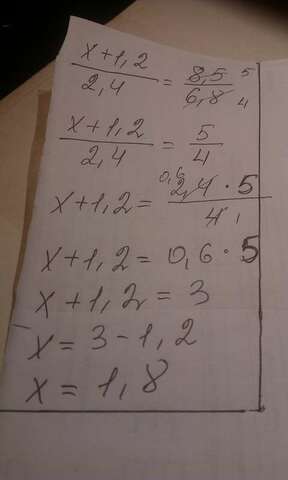 x+1,2/2,4 = 8,5/6,8 5/4
x+1,2/2,4 = 5/4
x+1,2 = 0,6 2,4·5/4 1
x+1,2 = 0,6·5
x+1,2 = 3
x = 3-1,2
x = 1,8